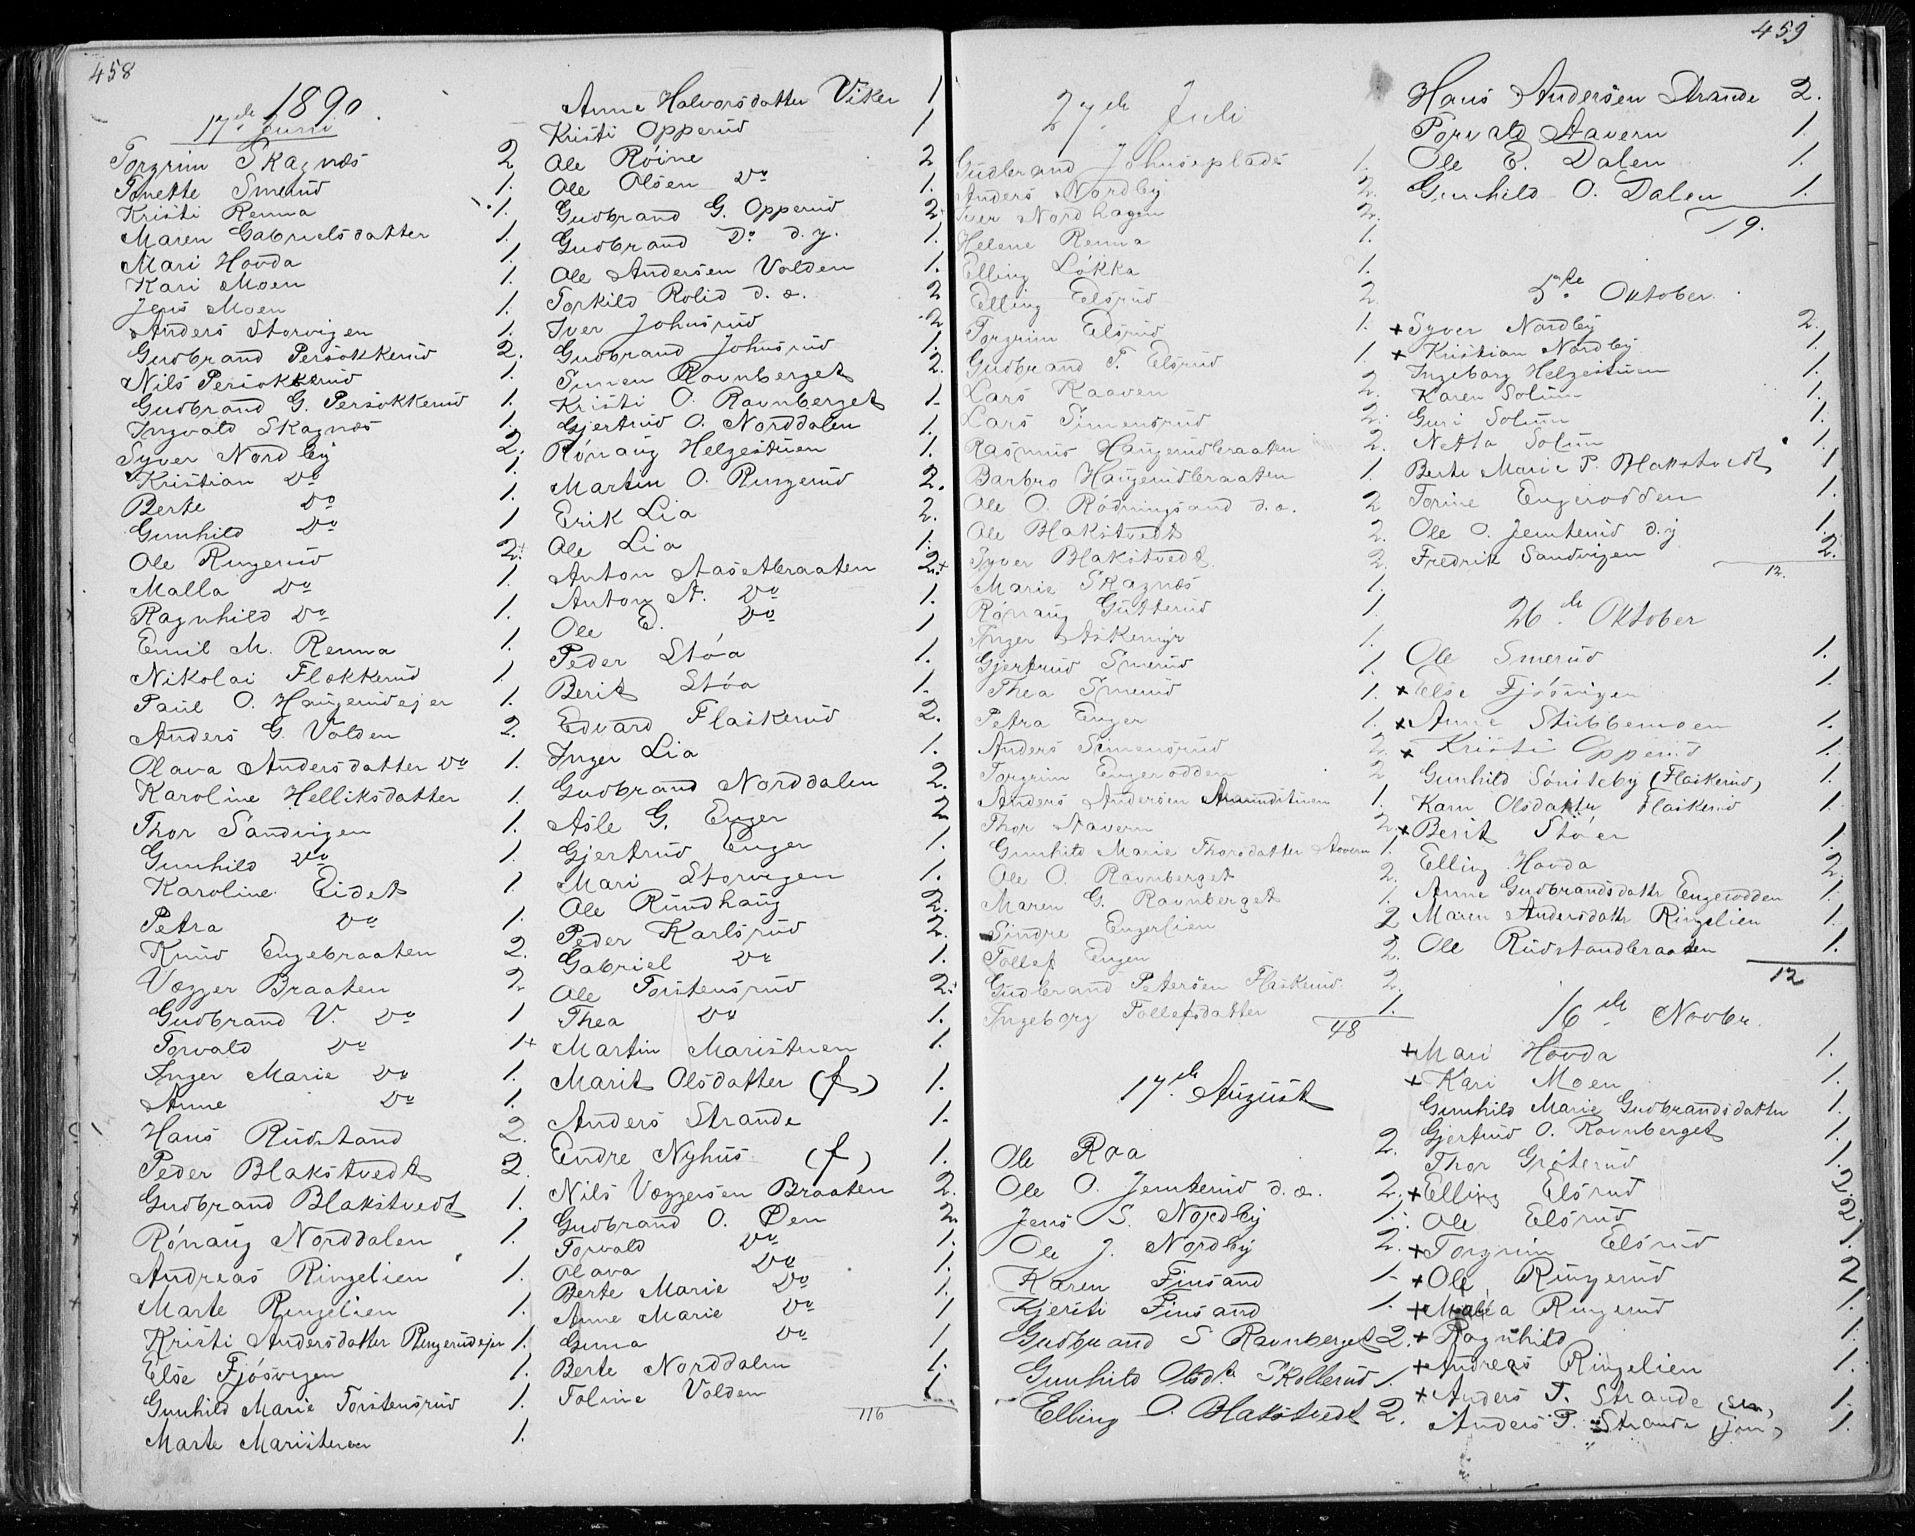 458
1890
17de Juni
Torgrim Skagnæs 2
Tonette Smerud 1.
Kristi Renna 1.
Maren Gabrielsdatter 1.
Mari Hovda 1.
Kari Moen 1.
Jens Moen 1.
Anders Storvigen 1.
Gudbrand Persokkerud 2.
Nils Persokkerud 1.
Gudbrand G. Persokkerud 1.
Ingvald Skagnæs 1.
Syver Nordby 2.
Kristian Do 1.
Berte Do 1.
Gunhild Do 1
Ole Ringerud 2.
Malla Do 1.
Ragnhild Do 1.
Emil M. Renna 1.
Nikolai Flokkerud 1.
Paul O. Haugerudejer 1.
Anders G. Volden 2.
Olava Andersdatter Do 1.
Karoline Helliksdatter 1.
Thor Sandvigen 1.
Gunhild Do 1.
Karoline Eidet 1.
Petra Do 1.
Knud Engebraaten 2.
Vegger Braaten 2
Gudbrand V. Do 1
Torvald Do 1+
Inger Marie Do 1.
Anne Do 1.
Hans Rudstand 2.
Peder Blakstvedt 2.
Gudbrand Blakstvedt 1.
Rønaug Norddalen 1.
Andreas Ringelien 1.
Marte Ringelien 1.
Kristi Andersdatter Ringerudejer 1.
Else Fjøsvigen 1.
Gunhild Marie Torstensrud 1.
Marte Maristuen 1.
Anne Halvorsdatter Viker 1
Kristi Opperud 1
Ole Røine 2
Ole Olsen Do 1.
Gudbrand G. Opperud 2.
Gudbrand Do d.y. 1.
Ole Andersen Volden 1.
Torkild Rolid d.æ. 2
Iver Johnsrud 2
Gudbrand Johnsrud 1.
Simen Ravnberget 2.
Kristi O. Ravnberget 1.
Gjertrud O. Norddalen 1.
Rønaug Helgestuen 1.
Martin O. Ringerud 2.
Erik Lia 2.
Ole Lia 1.
Anton Aasetbraaten 2.+
Anton A. Do 1.
Ole E. Do 1
Peder Støa 1.
Berit Støa 1.
Edvard Flaskerud 2.
Inger Lia 1.
Gudbrand Norddalen 2.
Asle G. Enger 2
Gjertrud Enger 1.
Mari Storvigen 1.
Ole Rundhaug 2.
Peder Karlsrud 2.
Gabriel Do 1.
Ole Torstensrud 2.
Thea Do 1.
Martin Maristuen 1.
Marit Olsdatter (f) 1.
Anders Strande 1.
Endre Nyhus (f) 1.
Nils Veggersen Braaten 2.
Gudbrand O. Øen 2.
Torvald Do 1.
Olava Do 1.
Berte Marie Do 1.
Anne Marie Do 1
Guna Do 1
Berte Norddalen 1.
Toline Volden 1.
116
459
27de Juli
Gudbrand Johnseplads 1.
Anders Nordby 2.
Iver Nordhagen 2.
Helene Renna 1.
Elling Løkka 1.
Elling Elsrud 2.
Torgrim Elsrud 1.
Gudbrand T. Elsrud 1.
Lars Kaaven 2.
Lars Simensrud 2.
Rasmus Haugerudbraaten 2.
Barbro Haugerudbraaten 1.
Ole O. Rødningsand d.æ. 2
Ole Blakstvedt 2.
Syver Blakstvedt 2.
Marie Skagnæs 1.
Rønaug Gutterud 1
Inger Askemyr 1.
Gjertrud Smerud 1.
Thea Smerud 1.
Petra Enger 1.
Anders Simensrud 2.
Torgrim Engerodden 2
Anders Andersen 1.
Thor Aavern 2
Gunhild Marie Thorsdatter Aavern 1.
Ole O. Ravnberget 2.
Maren G. Ravnberget 1.
Sindre Engerlien 2
Tollef Engen 2.
Gudbrand Petersen Flaskerud 2.
Ingeborg Tollefsdatter 1.
48
17de August
Ole Raa 2.
Ole O. Jemterud d.æ. 2.
Jens S. Nordby 1.
Ole J. Nordby 2.
Karen Finsand 1.
Kjersti Finsand 1.
Gudbrand S Ravnberget 2.
Gunhild Olsd.a Skollerud 1.
Elling O. Blakstvedt 2.
Hans Andersen Strande 2.
Torvald Aavern 1.
Ole E. Dalen 1.
Gunhild O. Dalen 1.
19.
5te Oktober
+ Syver Nordby 2.
+ Kristian Nordby 1.
Ingeborg Helgestuen 1.
Karen Solum 1.
Guri Solum 1.
Netta Solum 1.
Berte Marie P. Blakstvedt 1
Torine Engerodden 1.
Ole O. Jemterud d.y 1.
Fredrik Sandvigen 2.
12.
26de Oktober
Ole Smerud 1.
+ Else Fjøsvigen 1.
+ Anne Stubbemoen 1.
+ Kristi Opperud 1.
Gunhild Sønsteby (Flaskerud) 1.
Karn Olsdatter Flaskerud 1.
+ Berit Støen 1.
Elling Hovda 2.
Anne Gudbrandsdattr Engerodden 1.
Maren Andersdattr Ringelien 1.
Ole Rudstandbraaten 1.
12
16de Novbr.
+ Mari Hovda 1.
+ Kari Moen 1.
Gunhild Marie Gudbrandsdatter 1.
Gjertrud O. Ravnberget 1.
Thor Grøterud 1.
+ Elling Elsrud 2.
Ole Elsrud 2.
+ Torgrim Elsrud 1.
+ Ole Ringerud 2
+ Malla Ringerud 1.
+ Ragnhild 1.
+ Andreas Ringelien 1.
+ Anders T. Strande (sen) 1.
Anders P. Strande (jun) 1.